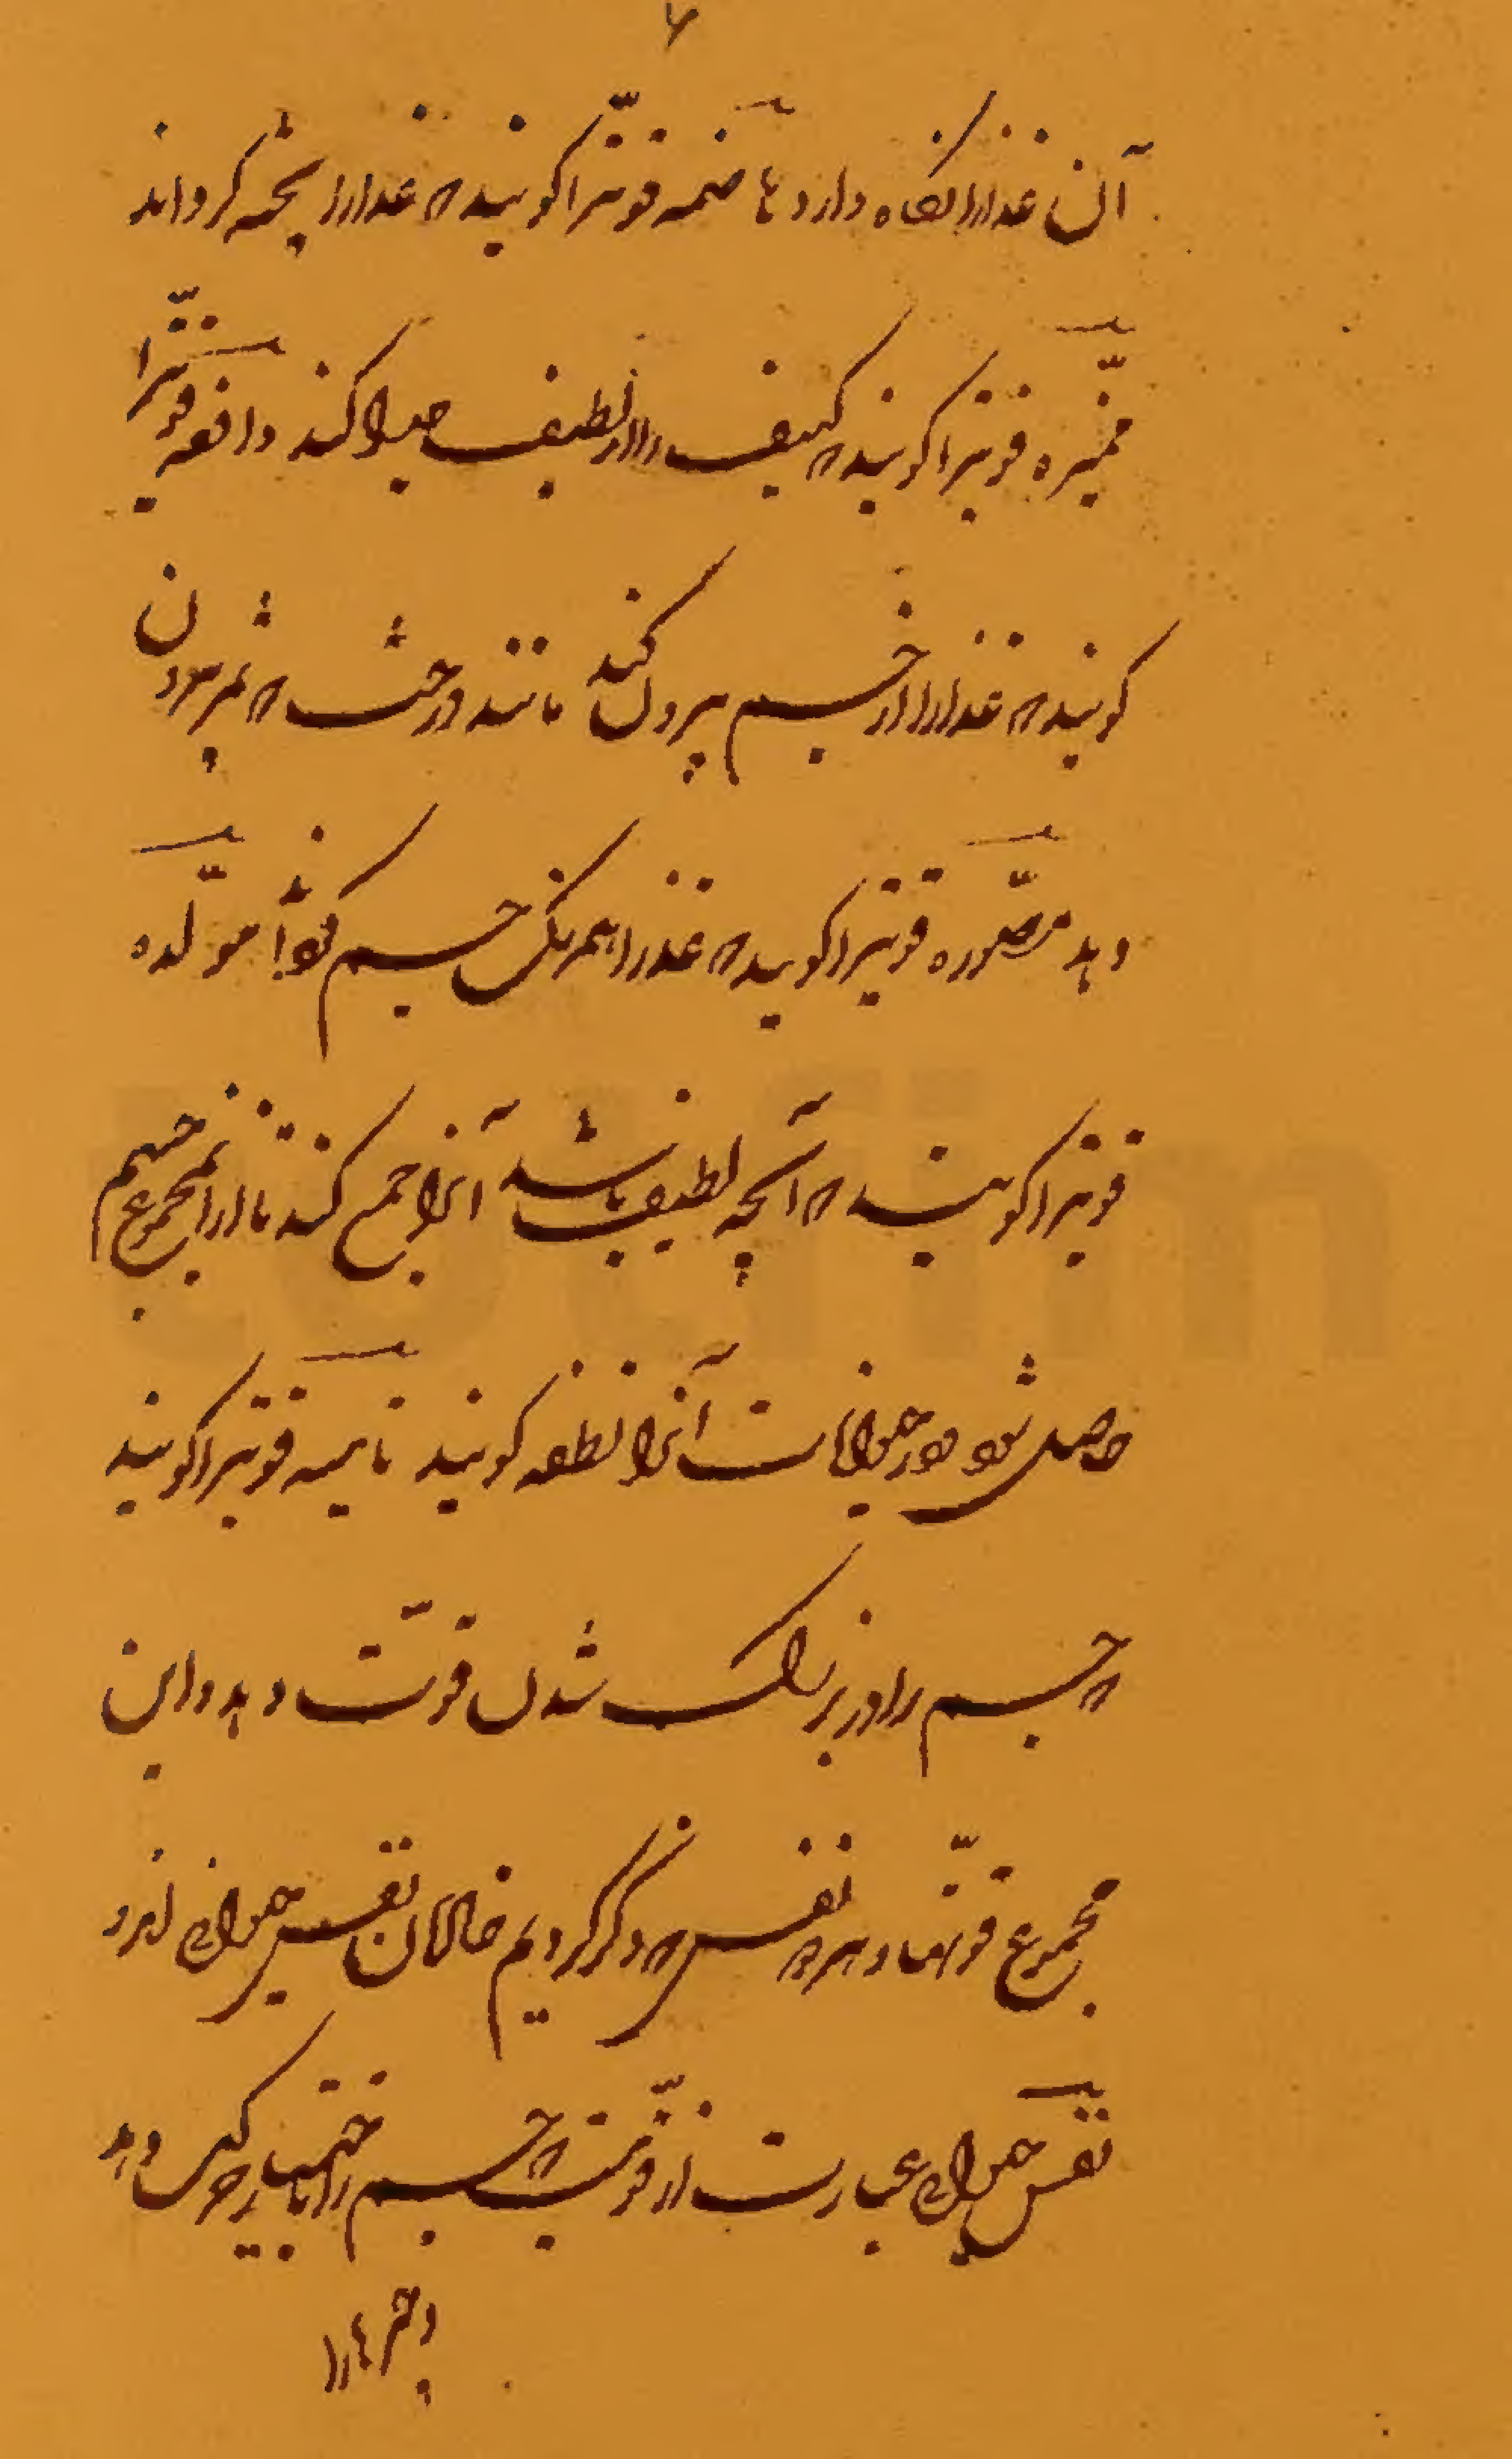 ۶
آن غذا را نگاه دارد هاضمه قوّتیرا گویند که غذا را پخته گرداند
ممیّزه قوتیرا گویند که کثیف را از لطیف جدا کند دافعه قوّتیرا
گویند که غذا را از جسم بیرون کند مانند درخت که ثمر بیرون
دهد مصّوره قوتیرا گویند که غذا را همرنگ جسم گرداند مولّده
قوتیرا گویند که آنچه لطیف باشد آنرا جمع کند تا از آن مجموع جسم
حاصل شود و در حیوانات آنرا نطفه گویند نامیه قوتیرا گویند
که جسم را در بزرگ شدن قوّت دهد و این
مجموع قوّتها و هر سه نفس که ذکر کردیم خادمان نفس حیوانی اند و
نفس حیوانی عبارت از قوّتیست که جسم را باختیار حرکت دهد
و چیزها را